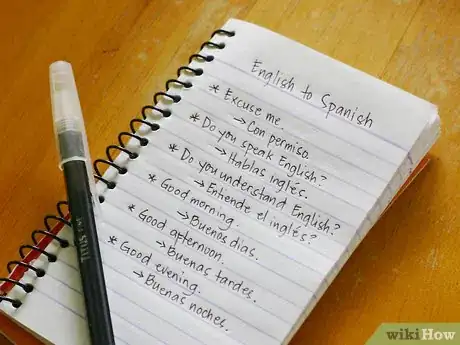 English to Spanish
* Excuse me.
→ Con permiso.
* Do you speak English?
→ Hablas inglés.
* Do you understand English?
→ Entiende el inglés?
* Good morning.
→ Buenos días.
* Good afternoon.
→ Buenas tardes.
* Good evening.
→ Buenas noches.
wikiHow